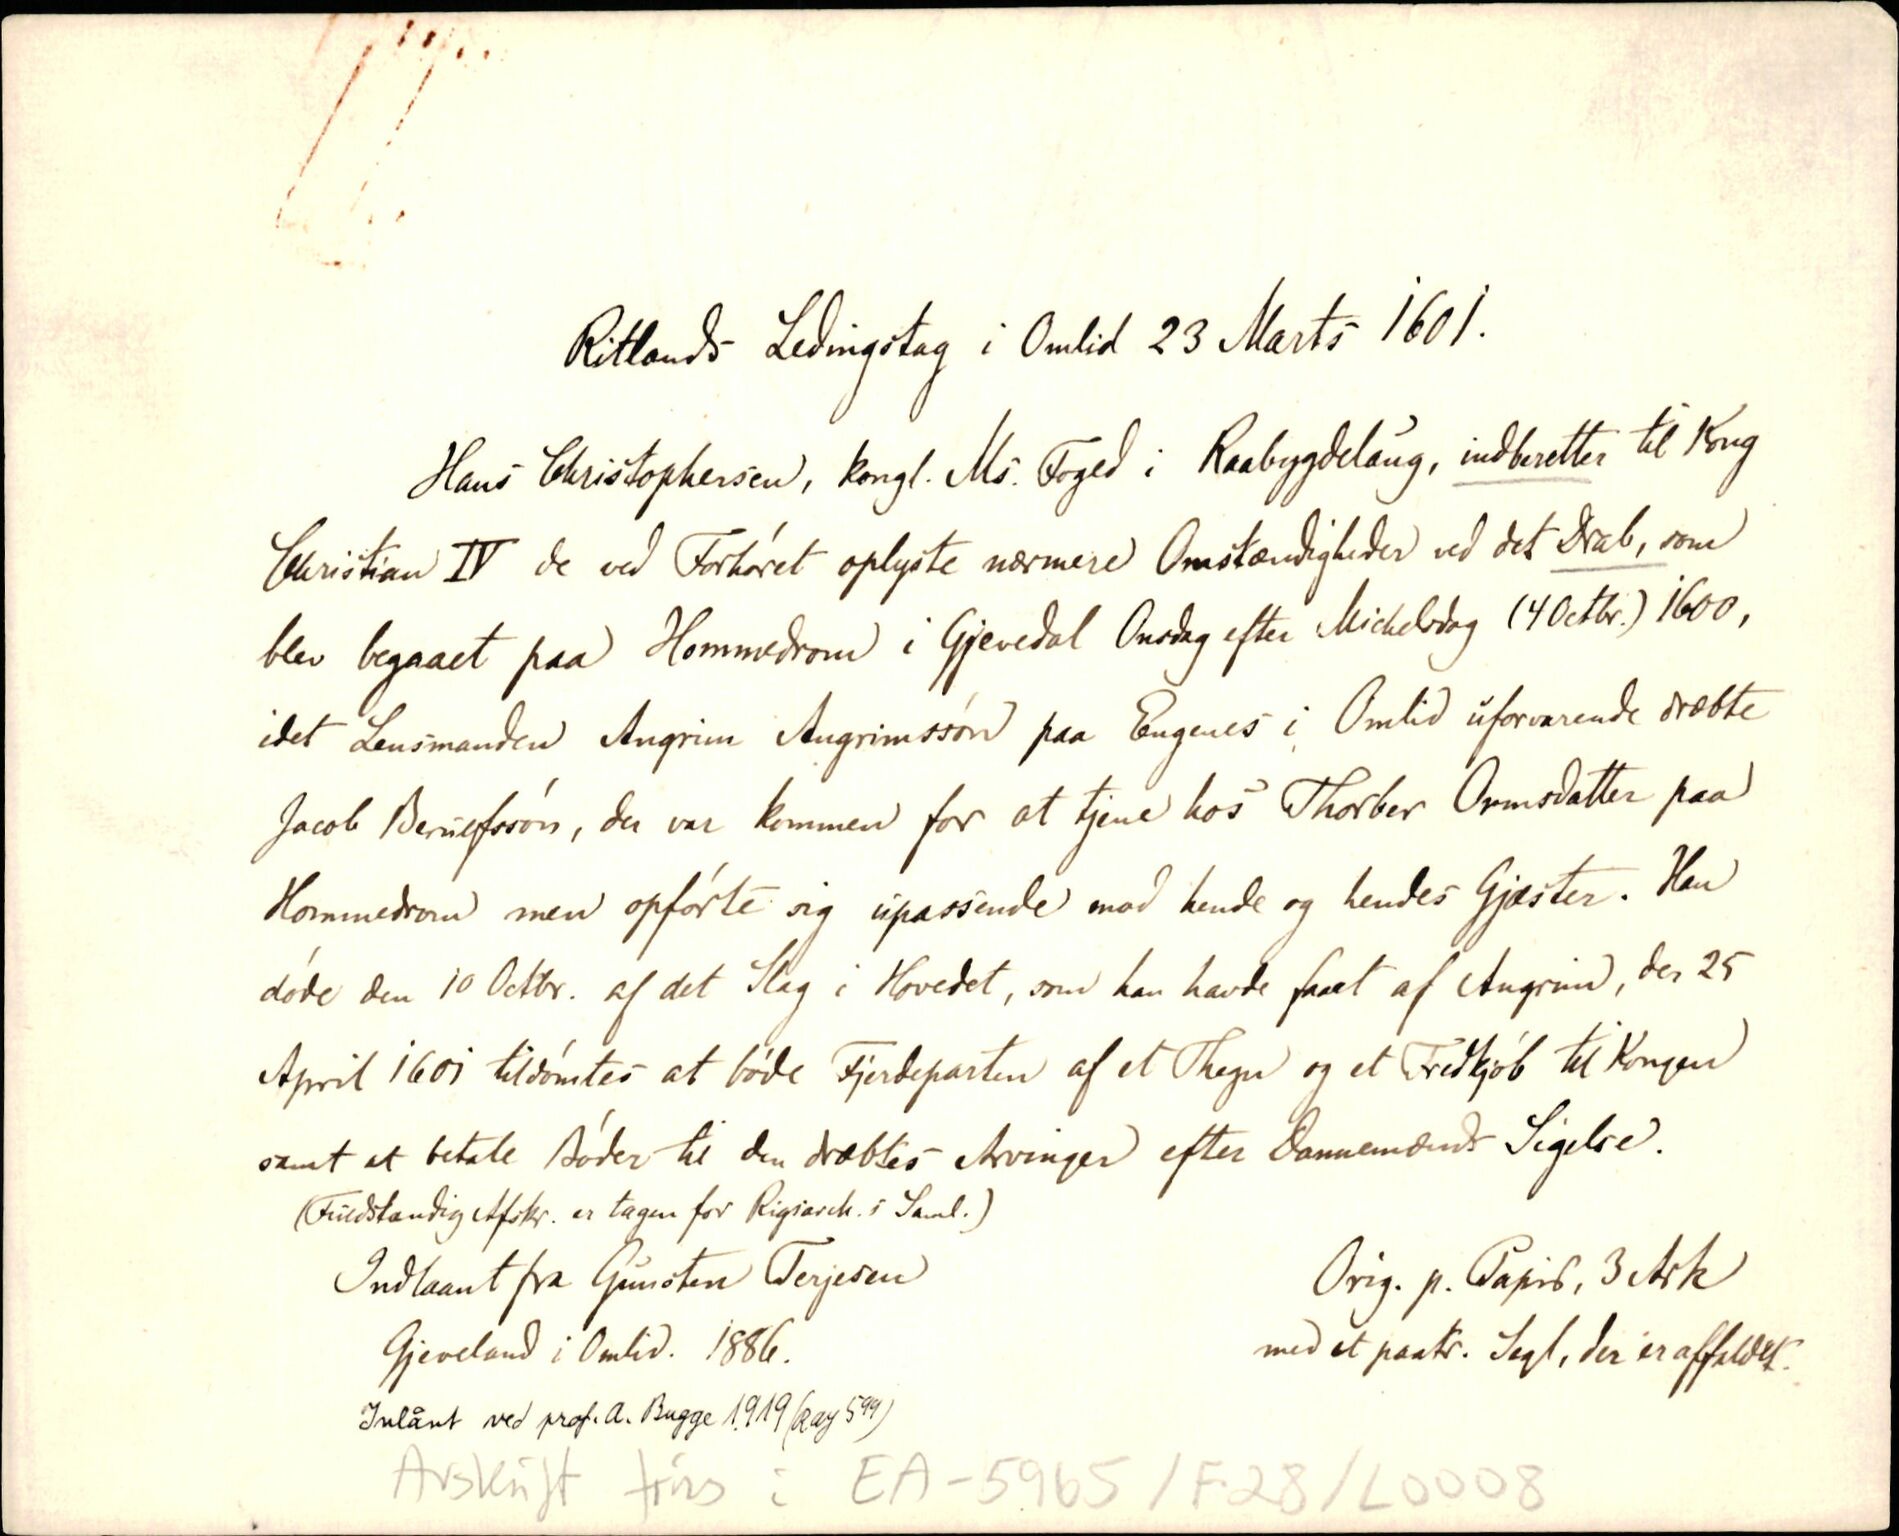 Ritlands Ledingstag i Omlid 23 Marts 1601.
Hans Christophersen, kongl. Ms. Foged i Raabygdelaug, indberetter til Kong
Christian IV de ved Forhøret oplyste nærmere Omstændigheder ved det Drab, som
blev begaaet paa Hommedrom i Gjevedal Onsdag efter Michelsdag (4 Octbr.) 1600,
idet Lensmanden Angrim Angrimssøn paa Engenes i Omlid uforvarende dræbte
Jacob Beruefssøn, der var kommen for at tjene hos Thorber Ormsdatter paa
Hommedrom men opførte sig upassende mod hende og hendes Gjæster. Han
døde den 10 Octbr. af det Slag i Hovedet, som han havde faaet af Angrim, der 25
April 1601 tildømtes at bøde Fjerdeparten af et Thegn og et Fredkjøb til Kongen
samt at betale Bøder til den dræbtes Arvinger efter Dannemænds Sigelse.
(Fuldstændig Afskr. er tagen for Rigsarch.s Saml.)
Indlaant fra Gunsten Terjesen
Gjeveland i Omlid. 1886.
Orig. p. Papir, 3 Ark
med et paatr. Segl, der er affaldet.
Inlånt ved prof. A. Bugge 1919 (Log 599)
Avskrift fins i EA-5965/F28/L0008